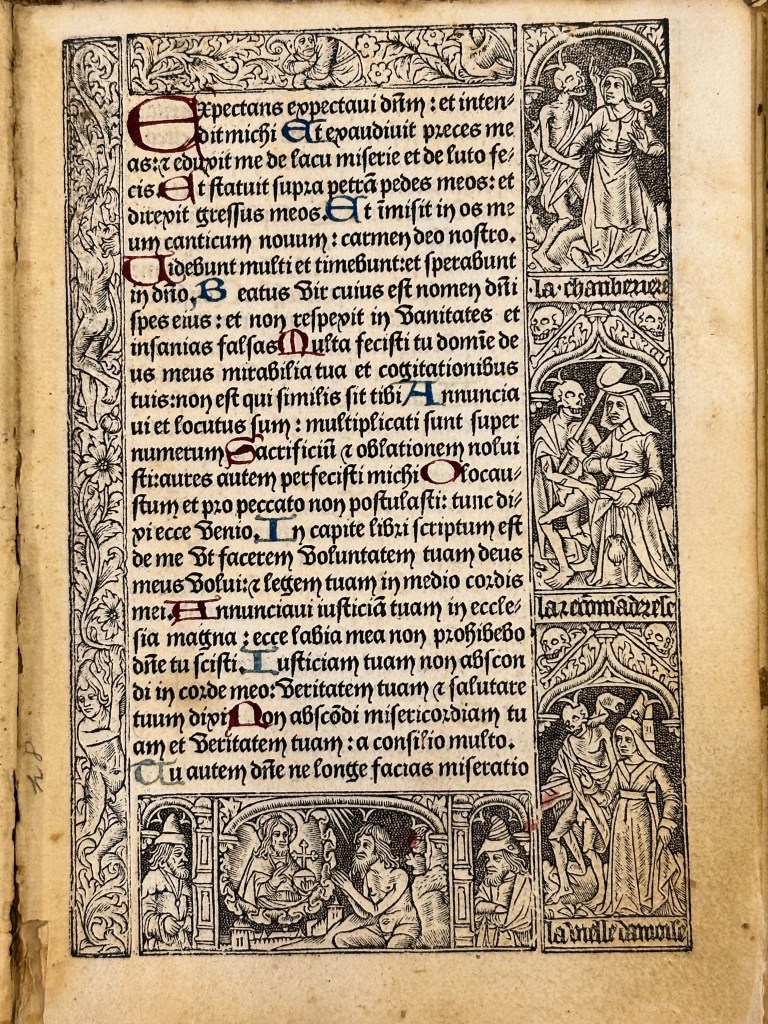 Expectans expectaui dn̄m : et inten-
dit michi Et exaudiuit preces me
as: ⁊ eduxit me de lacu miserie et de luto fe-
cis. Et statuit supra petrā pedes meos: et
direxit gressus meos. Et īmisit in os me
um canticum nouum : carmen deo nostro.
Uidebunt multi et timebunt: et sperabunt
in dn̄o. Beatus vir cuius est nomen dn̄i
spes eius : et non respexit in vanitates et
insanias falsas Multa fecisti tu domīe de
us meus mirabilia tua et cogitationibus
tuis: non est qui similis sit tibi Annuncia
ui et locutus sum : multiplicati sunt super
numerum Sacrificiū ⁊ oblationem nolui
sti: aures autem perfecisti michi Olocau-
stum et pro peccato non postulasti: tunc di-
xi ecce venio. In capite libri scriptum est
de me vt facerem voluntatem tuam deus
meus volui: ⁊ legem tuam in medio cordis
mei. Annunciaui iusticiā tuam in eccle-
sia magna : ecce labia mea non prohibebo
dn̄e tu scisti. Iusticiam tuam non abscon
di in corde meo: veritatem tuam ⁊ salutare
tuum dixi Non abscōdi misericordiam tu
am et veritatem tuam : a consilio multo.
Tu autem dn̄e ne longe facias miseratio
la chanberiere
la recomāderesc
la vielle damoise